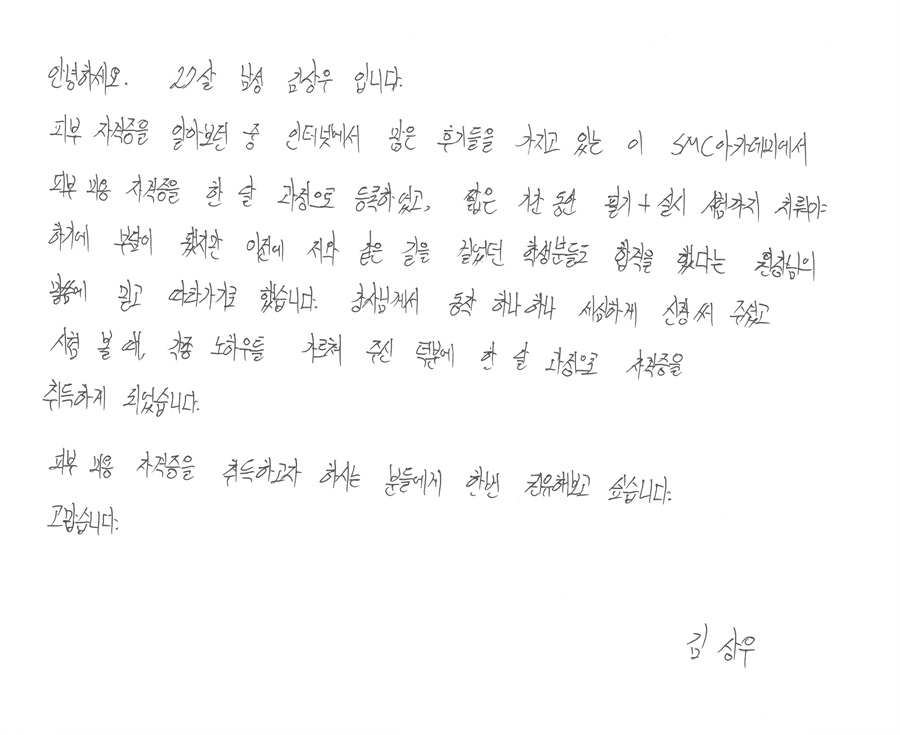 안녕하세요. 27살 남성 김상우 입니다.
피부 자격증을 알아보던 중 인터넷에서 많은 후기들을 가지고 있는 이 SMC아카데미에서
피부 미용 자격증을 한 달 과정으로 등록하였고, 짧은 기간 동안 필기+실시 시험까지 치뤄야
하기에 부담이 됬지만 이전에 저와 같은 길을 걸었던 학생분들도 합격을 했다는 원장님의
말씀에 믿고 따라가기로 했습니다. 강사님께서 동작 하나하나 세심하게 신경써 주셨고
시험 볼 때, 각종 노하우들 가르쳐 주신 덕분에 한 달 과정으로 자격증을
취득하게 되었습니다.
피부 미용 자격증을 취득하고자 하시는 분들에게 한번 권유해보고 싶습니다.
고맙습니다.
김상우